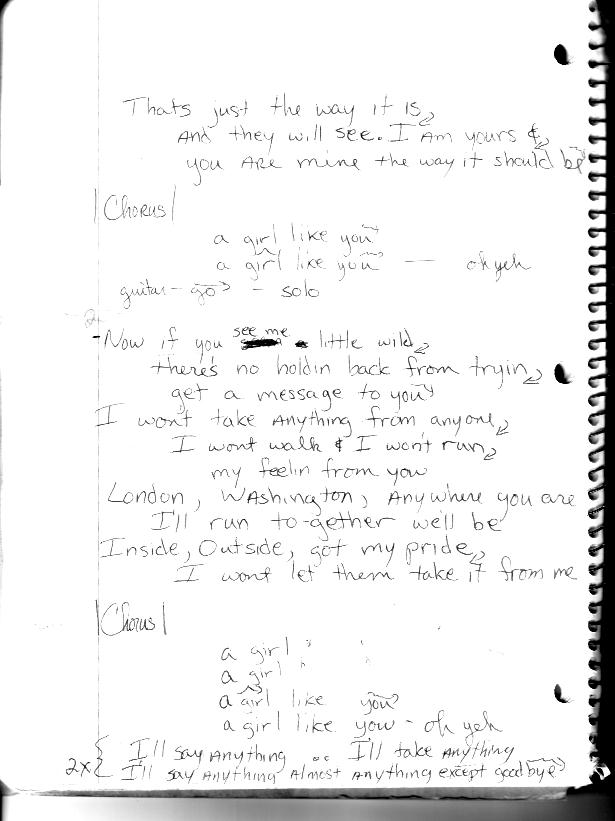 Thats just the way it is
And they will see. I Am yours &
you Are mine the way it should be
|Chorus|
a girl like you
a girl like you — oh yeh
guitar - go - solo
2
- Now if you see me a little wild
there's no holdin back from tryin
get a message to you
I won't take Anything from anyone
I wont walk & I won't run
my feelin from you
London, WAshington, Anywhere you are
I'll run to-gether we'll be
Inside, Outside, got my pride
I wont let them take it from me
|Chorus|
a girl " "
a girl "
a girl like you
a girl like you - oh yeh
2x { I'll say Anything .. I'll take Anything
I'll say Anything Almost Anything except goodbye